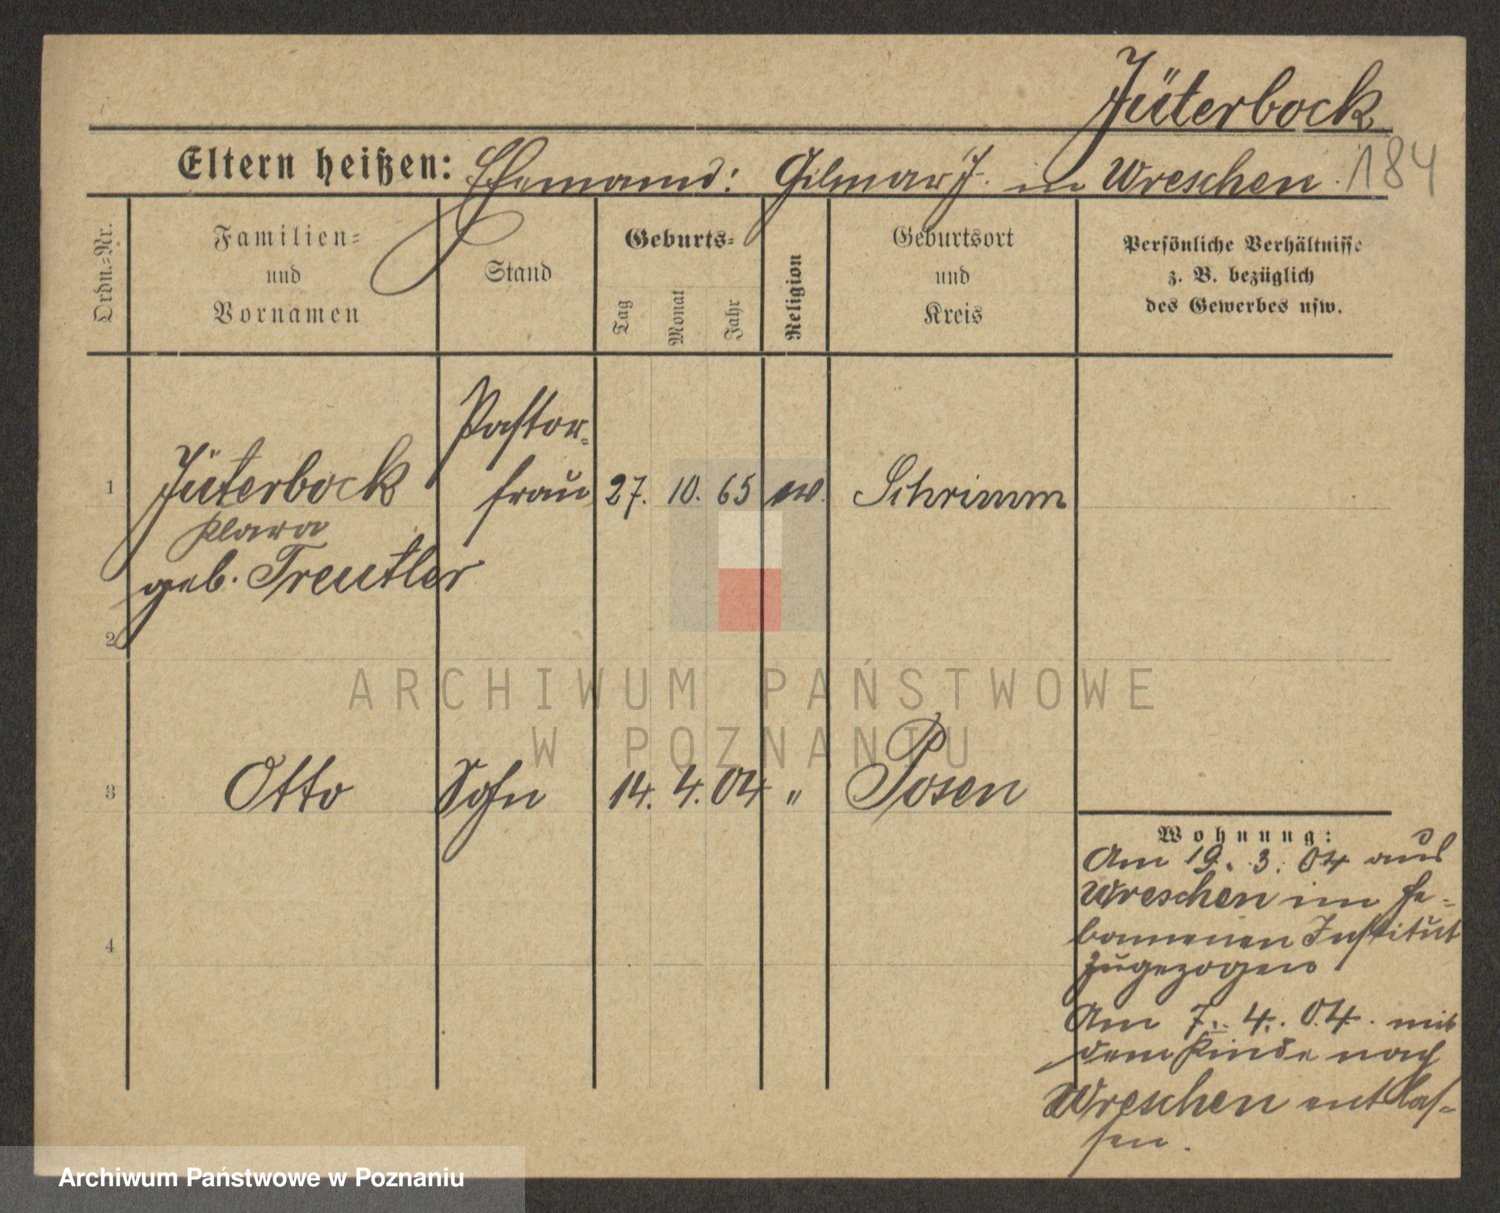 Jüterbock
Eltern heißen: Ehemann: Gilmar J. in Wreschen. 184
Ordn.-Nr.
Familien-
und
Vornamen
Stand
Geburts-
Tag
Monat
Jahr
Religion
Geburtsort
und
Kreis
Persönliche Verhältnisse
z. B. bezüglich
des Gewerbes usw.
1
Jüterbock
Klara
geb. Treutler
Pastor-
frau
27. 10. 65 ev. Schrimm
2
3 Otto Sohn 14. 4. 04 " Posen
4
Wohnung:
Am 19. 3. 04 aus
Wreschen im He-
bammen Institut
zugezogen
Am 7. 4. 04. mit
dem Kinde nach
Wreschen entlas-
sen.
ARCHIWUM PAŃSTWOWE
W POZNANIU
Archiwum Państwowe w Poznaniu